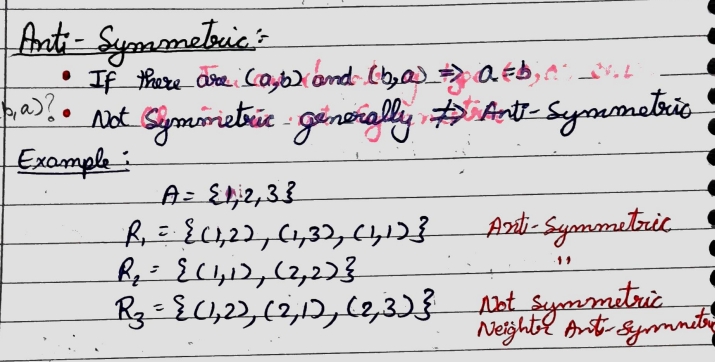 Anti-Symmetric:-
• If there are (a,b) and (b,a) => a=b
b,a)? • Not Symmetric generally ≠> Anti-Symmetric
Example:
A = {1,2,3}
R₁ = {(1,2), (1,3), (1,1)} Anti-Symmetric
R₂ = {(1,1), (2,2)} "
R₃ = {(1,2), (2,1), (2,3)} Not Symmetric
Neighter Anti-Symmetric